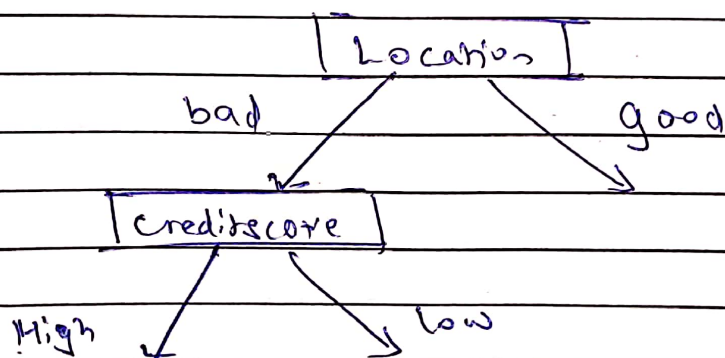 Location
bad
good
creditscore
High
low